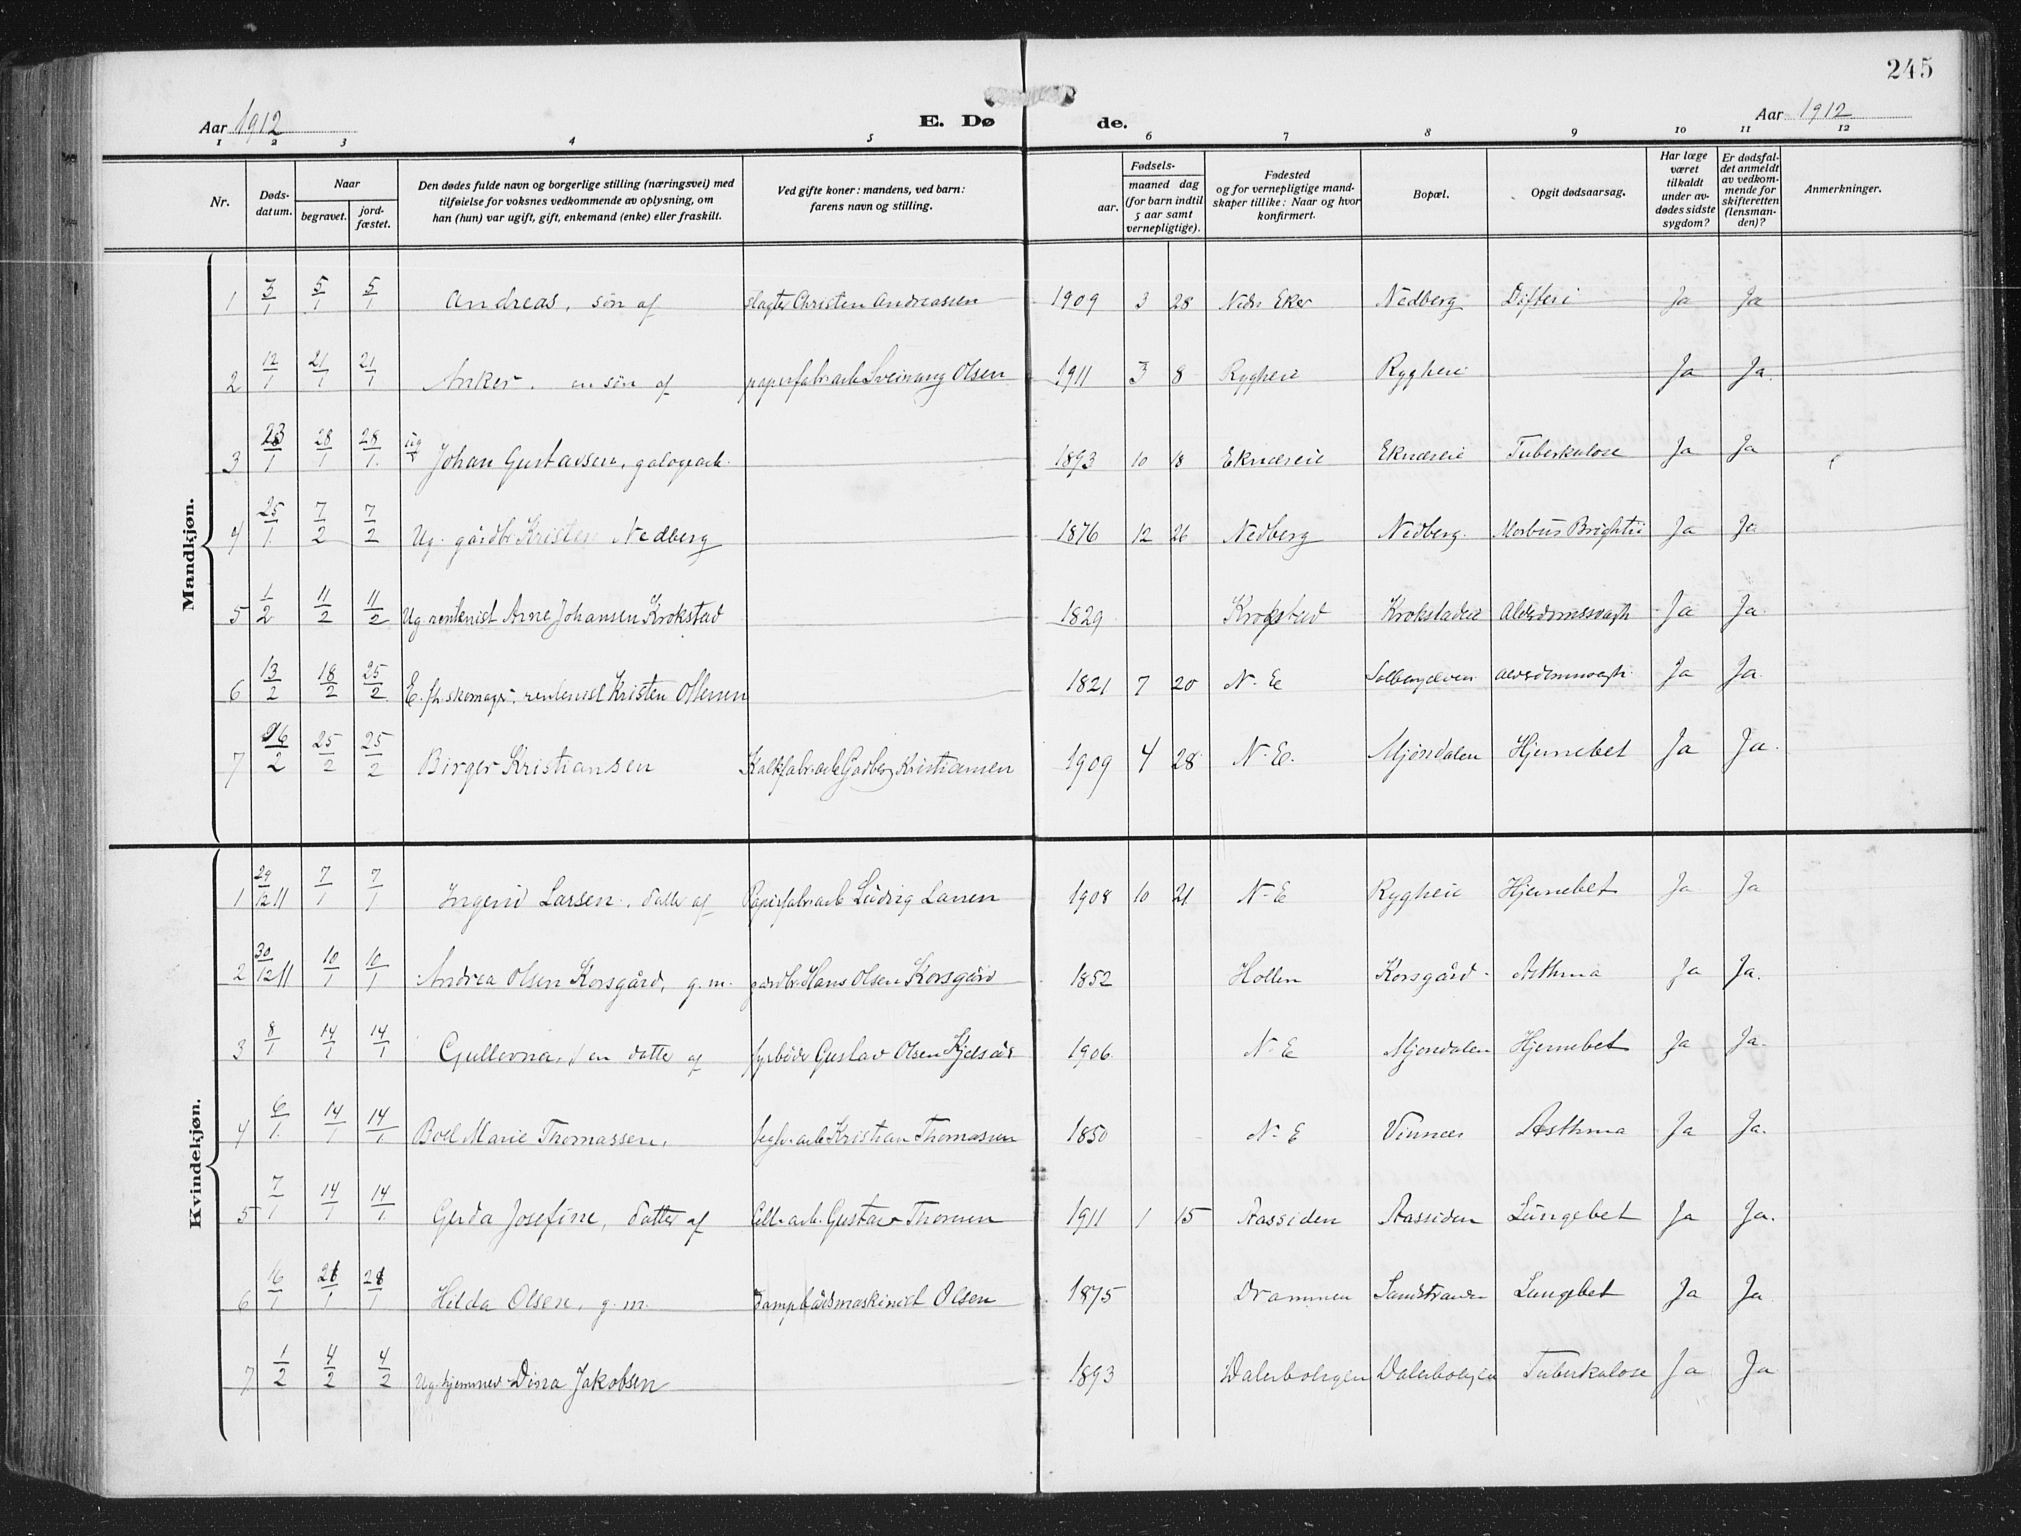 245
Aar 1912 E. Dø de. Aar 1912
1 2 3 4 5 6 7 8 9 10 11 12
Nr. Døds-datum. Naar begravet. jord-fæstet. Den dødes fulde navn og borgerlige stilling (næringsvei) med tilføielse for voksnes vedkommende av oplysning, om han (hun) var ugift, gift, enkemand (enke) eller fraskilt. Ved gifte koner: mandens, ved barn: farens navn og stilling. Fødsels- aar. maaned dag (for barn indtil 5 aar samt vernepligtige). Fødested og for vernepligtige mand-skaper tillike: Naar og hvor konfirmert. Bopæl. Opgit dødsaarsag. Har læge været tilkaldt under av-dødes sidste sygdom? Er dødsfal-det anmeldt av vedkom-mende for skifteretten (lensman-den)? Anmerkninger.
Mandkjøn.
1 3/1 5/1 5/1 Andreas, søn af slagter Christen Andreassen 1909 3 28 Nedr Eker Nedberg Difteri Ja Ja
2 12/1 21/1 21/1 Anker, en søn af papirfabrarb Sveinung Olsen 1911 3 8 Rygheie Rygheie Ja Ja.
3 23/1 28/1 28/1. ug Johan Gustavsen, 1893 10 18 Eknæseie Eknæseie Tuberkulose Ja Ja
4 25/1. 7/2 7/2 Ug. gårdbr Kristen Nedberg 1876 12 26 Nedberg Nedberg. Morbus Brightii Ja Ja
5 1/2 11/2 11/2 Ug rentenist Arne Johansen Krokstad 1829 Krokstad Krokstadeie Ja Ja.
6 13/2 18/2 25/2 E. fh. skomager, rentenist Kristen 1821 7 20 N. E Solbergelven Ja Ja.
7 16/2 25/2 25/2 Birger Kristiansen Kalkfabrarb Kristiansen 1909 4 28 N. E. Mjøndalen Hjernebet Ja Ja.
Kvindekjøn.
1 29/12 11 7/1 7/1 Ingerid Larsen, datter af Papirfabrarb Ludvig Larsen 1908 10 21 N. E Rygheie Hjernebet Ja Ja
2 30/12 11 10/1 10/1 Andrea Olsen Korsgård, g.m. gårdbr. Hans Olsen Korsgård 1852 Hollen Korsgård Asthma Ja Ja.
3 8/1 14/1 14/1 Gullovna, en datte af fyrbøder Gustav Olsen Kjelsås 1906 N. E Mjøndalen Hjernebet Ja Ja.
4 6/1. 14/1 14/1 Boel Marie Thomassen, teglv.arb Kristian Thomassen 1850 N. E Vinnæs Asthma Ja Ja.
5 7/1 14/1 14/1. Gerda Josefine, datter af Cell.arb. Gustav Thoresen 1911 1 15 Aassiden Aassiden Lungebet Ja Ja.
6 16/1 21/1 21/1 Hilda Olsen, g.m. Dampbådsmaskinist Olsen 1875 Drammen Sandstranden Lungebet Ja Ja
7 1/2 4/2 4/2 Ug. hjemmev Dina Jakobsen 1893 Dalerboligen Dalerboligen Tuberkulose Ja Ja